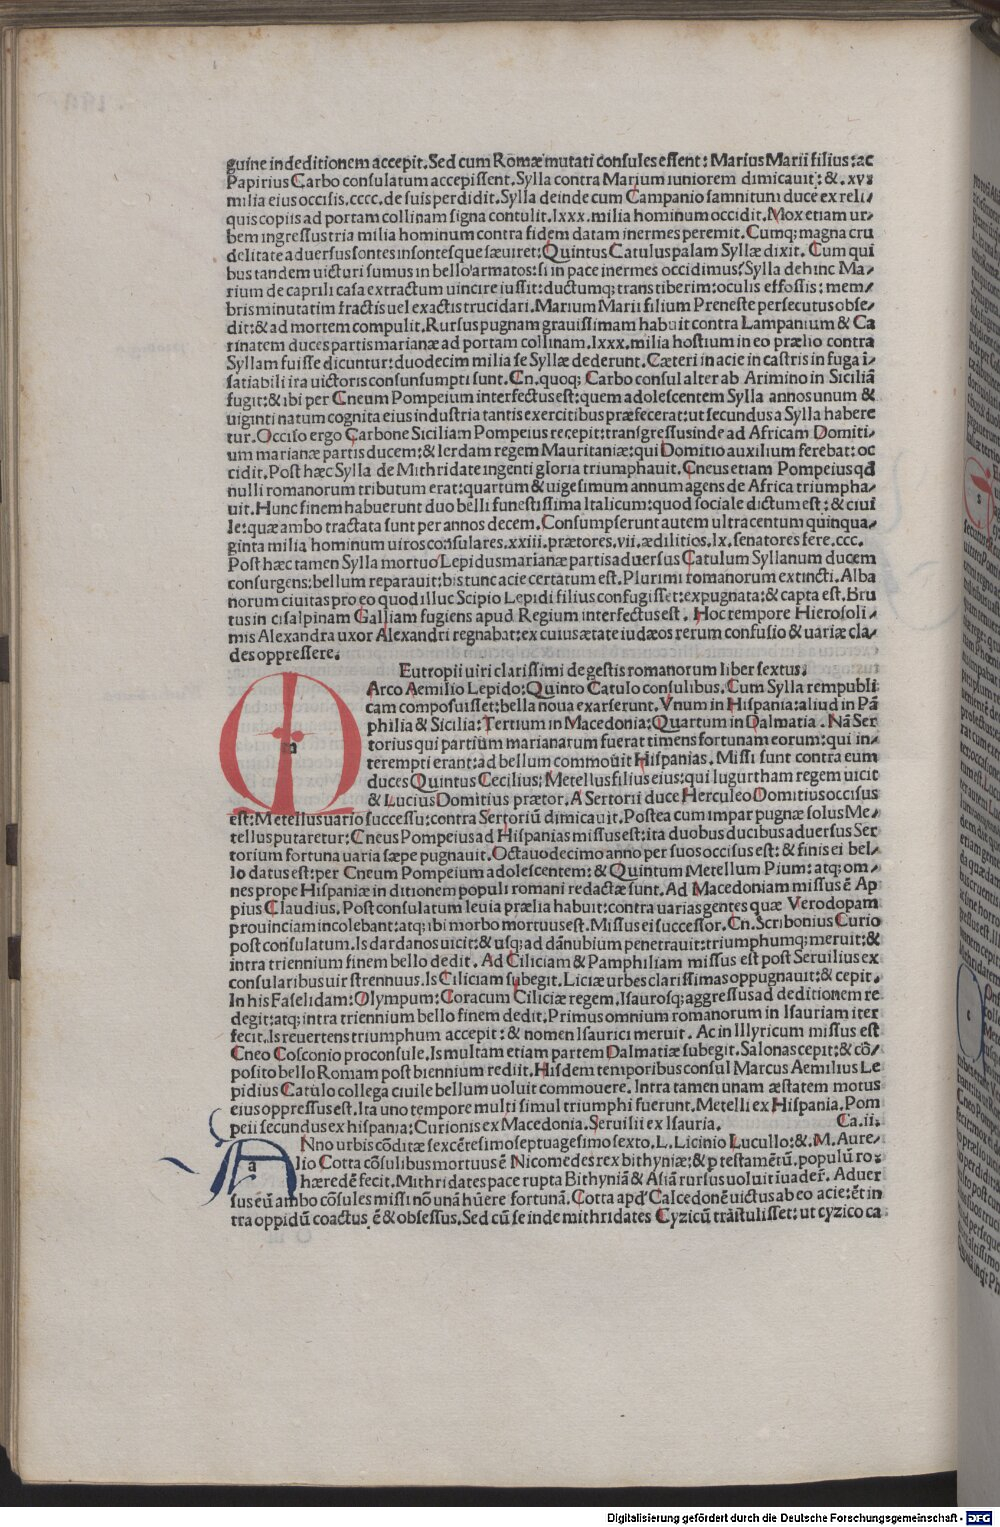 guine in deditionem accepit. Sed cum Romæ mutati consules essent: Marius Marii filius: ac
Papirius Carbo consulatum accepissent. Sylla contra Marium iuniorem dimicauit: &. xv:
milia eius occisis. cccc. de suis perdidit. Sylla deinde cum Campanio samnitum duce ex reli/
quis copiis ad portam collinam signa contulit. lxxx. milia hominum occidit. Mox etiam ur/
bem ingressus tria milia hominum contra fidem datam inermes peremit. Cumq; magna cru
delitate aduersus sontes insontesque sæuiret: Quintus Catulus palam Syllæ dixit. Cum qui
bus tandem uicturi sumus in bello armatos: si in pace inermes occidimus? Sylla dehinc Ma/
rium de caprili casa extractum uincire iussit: ductumq; trans tiberim: oculis effossis: mem/
bris minutatim fractis uel exactis trucidari. Marium Marii filium Preneste persecutus obse/
dit: & ad mortem compulit. Rursus pugnam grauissimam habuit contra Lampanium & Ca
rinatem duces partis marianæ ad portam collinam. lxxx. milia hostium in eo prælio contra
Syllam fuisse dicuntur: duodecim milia se Syllæ dederunt. Cæteri in acie in castris in fuga ī/
satiabili ira uictoris consunsumpti sunt. Cn. quoq; Carbo consul alter ab Arimino in Siciliā
fugit: & ibi per Cneum Pompeium interfectus est: quem adolescentem Sylla annos unum &
uiginti natum cognita eius industria tantis exercitibus præfecerat: ut secundus a Sylla habere
tur. Occiso ergo Carbone Siciliam Pompeius recepit: transgressus inde ad Africam Domiti/
um marianæ partis ducem: & Ierdam regem Mauritaniæ: qui Domitio auxilium ferebat: oc
cidit. Post hæc Sylla de Mithridate ingenti gloria triumphauit. Cneus etiam Pompeius qđ
nulli romanorum tributum erat: quartum & uigesimum annum agens de Africa triumpha/
uit. Hunc finem habuerunt duo belli funestissima Italicum: quod sociale dictum est: & ciui
le: quæ ambo tractata sunt per annos decem. Consumpserunt autem ultra centum quinqua/
ginta milia hominum uiros consulares. xxiii. prætores. vii. ædilitios. lx. senatores fere. ccc.
Post hæc tamen Sylla mortuo Lepidus marianæ partis aduersus Catulum Syllanum ducem
consurgens: bellum reparauit: bis tunc acie certatum est. Plurimi romanorum extincti. Alba
norum ciuitas pro eo quod illuc Scipio Lepidi filius confugisset: expugnata: & capta est. Bru
tus in cisalpinam Galliam fugiens apud Regium interfectus est. Hoc tempore Hierosoli/
mis Alexandra uxor Alexandri regnabat: ex cuius ætate iudæos rerum confusio & uariæ cla/
des oppressere.
Eutropii uiri clarissimi de gestis romanorum liber sextus.
m
Arco Aemilio Lepido: Quinto Catulo consulibus. Cum Sylla rempubli
cam composuisset: bella noua exarserunt. Vnum in Hispania: aliud in Pā
philia & Sicilia: Tertium in Macedonia: Quartum in Dalmatia. Nā Ser
torius qui partium marianarum fuerat timens fortunam eorum: qui in/
terempti erant: ad bellum commouit Hispanias. Missi sunt contra eum
duces Quintus Cecilius; Metellus filius eius: qui Iugurtham regem uicit
& Lucius Domitius prætor. A Sertorii duce Herculeo Domitius occisus
est: Metellus uario successu: contra Sertoriū dimicauit. Postea cum impar pugnæ solus Me/
tellus putaretur: Cneus Pompeius ad Hispanias missus est: ita duobus ducibus aduersus Ser
torium fortuna uaria sæpe pugnauit. Octauodecimo anno per suos occisus est: & finis ei bel/
lo datus est: per Cneum Pompeium adolescentem: & Quintum Metellum Pium: atq; om/
nes prope Hispaniæ in ditionem populi romani redactæ sunt. Ad Macedoniam missus ē Ap
pius Claudius. Post consulatum leuia prælia habuit: contra uarias gentes quæ Verodopam
prouinciam incolebant: atq; ibi morbo mortuus est. Missus ei successor. Cn. Scribonius Curio
post consulatum. Is dardanos uicit: & usq; ad dānubium penetrauit: triumphumq; meruit: &
intra triennium finem bello dedit. Ad Ciliciam & Pamphiliam missus est post Seruilius ex
consularibus uir strennuus. Is Ciliciam subegit. Liciæ urbes clarissimas oppugnauit: & cepit.
In his Faselidam: Olympum: Coracum Ciliciæ regem. Isaurosq; aggressus ad deditionem re
degit: atq; intra triennium bello finem dedit. Primus omnium romanorum in Isauriam iter
fecit. Is reuertens triumphum accepit: & nomen Isaurici meruit. Ac in Illyricum missus est
Cneo Cosconio proconsule. Is multam etiam partem Dalmatiæ subegit. Salonas cepit: & cō/
posito bello Romam post biennium rediit. Hisdem temporibus consul Marcus Aemilius Le
pidius Catulo collega ciuile bellum uoluit commouere. Intra tamen unam æstatem motus
eius oppressus est. Ita uno tempore multi simul triumphi fuerunt. Metelli ex Hispania. Pom
peii secundus ex hispania: Curionis ex Macedonia. Seruilii ex Isauria. Ca. ii.
a
Nno urbis cōditæ sexcētesimo septuagesimo sexto. L. Licinio Lucullo: &. M. Aure/
lio Cotta cōsulibus mortuus ē Nicomedes rex bithyniæ: & p testamētū. populū ro:
hæredē fecit. Mithridates pace rupta Bithyniā & Asiā rursus uoluit iuader. Aduer
sus eū ambo cōsules missi nō unā hūere fortunā. Cotta apd' Calcedonē uictus ab eo acie: ēt in
tra oppidū coactus ē & obsessus. Sed cū se inde mithridates Cyzicū trāstulisset: ut cyzico ca
Digitalisierung gefördert durch die Deutsche Forschungsgemeinschaft - DFG